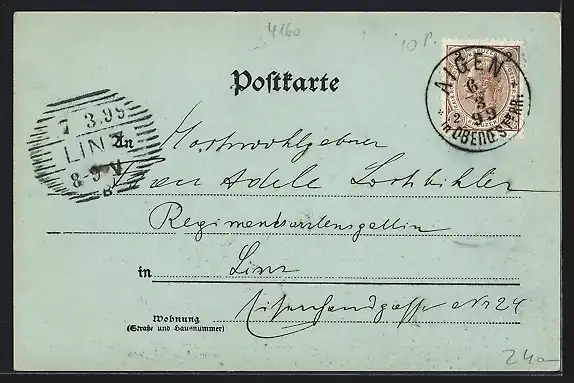 4160
10 P.
Postkarte
2 2
AIGEN
6
3
99
IN OBEROSTERR:
7 3.99
LINZ
8-9 V
An Hochwohlgeboren
Frau Adele
in Linz
Wohnung
(Straße und Hausnummer)
Nr 24
24a